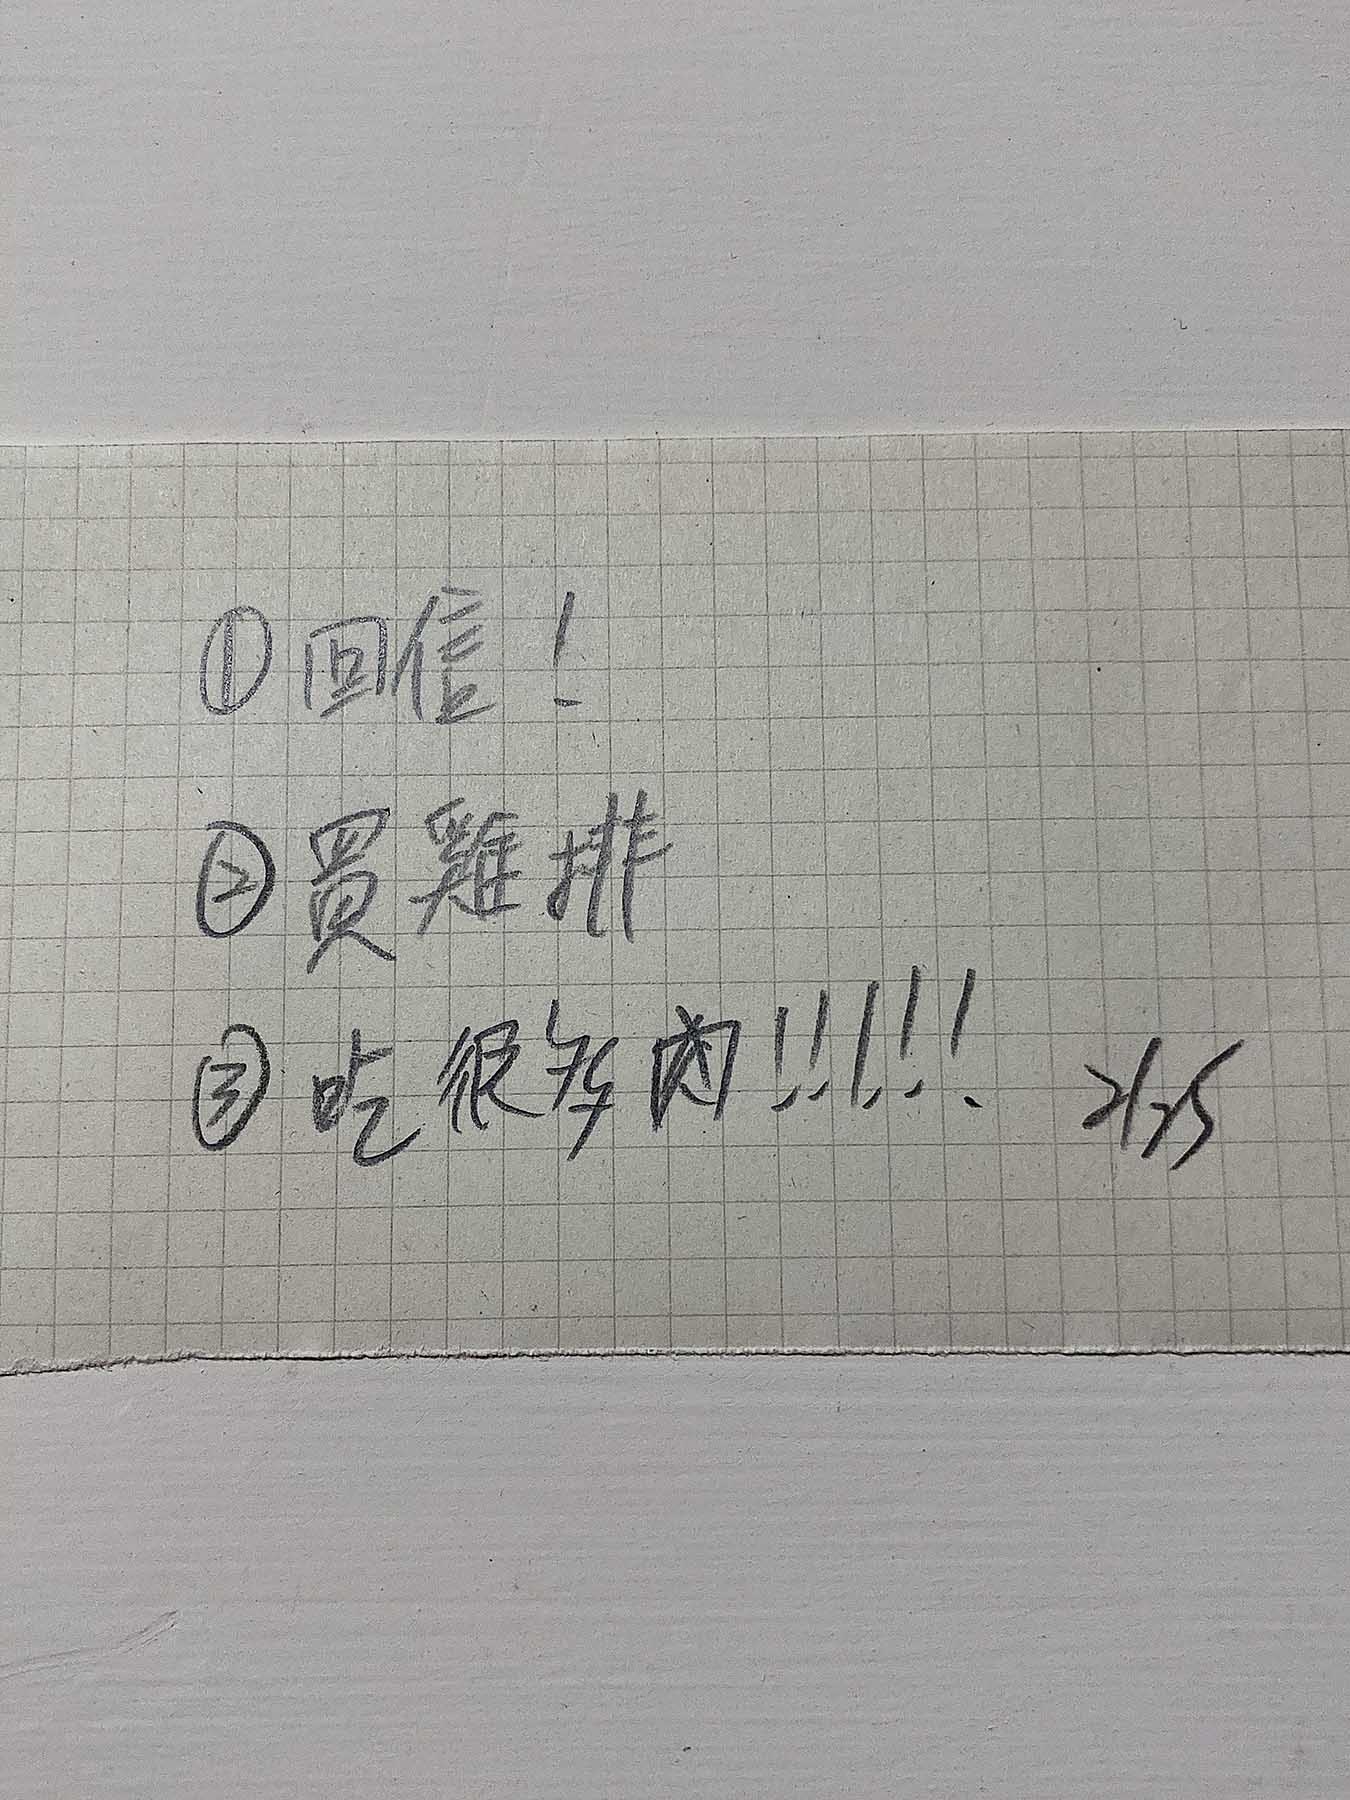 ① 回信！
② 買雞排
③ 吃很多肉！！！！！ 2/25